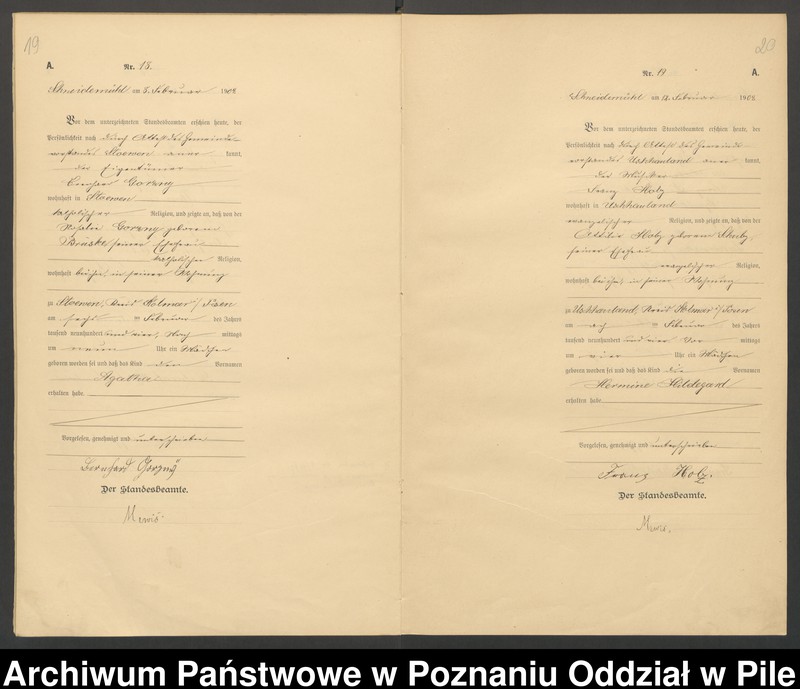 19
A.
Nr. 18.
Schneidemühl am 8. Februar 1904
Vor dem unterzeichneten Standesbeamten erschien heute, der
Persönlichkeit nach durch Attest des Gemeinde
vorstandes Stoewen aner kannt,
der Eigentümer
Gorzny
wohnhaft in Stoewen
katholischer Religion, und zeigte an, daß von der
Rosalie Gorzny geborenen
Brüske seiner Ehefrau
katholischer Religion,
wohnhaft bei ihm, in seiner Wohnung
zu Stoewen, Kreis Kolmar i/ Posen
am sechs ten Februar des Jahres
tausend neunhundert und vier, Nach mittags
um neun Uhr ein Mädchen
geboren worden sei und daß das Kind den Vornamen
Agathe
erhalten habe.
Vorgelesen, genehmigt und unterschrieben
Bernhard Gorzny
Der Standesbeamte.
20
Nr. 19
A.
Schneidemühl am Februar 1904
Vor dem unterzeichneten Standesbeamten erschien heute, der
Persönlichkeit nach durch Attest des Gemeinde
vorstandes Uschhauland aner kannt,
der Musiker
Franz Holz
wohnhaft in Uschhauland
evangelischer Religion, und zeigte an, daß von der
Ottilie Holz geborenen Schulz
seiner Ehefrau
evangelischer Religion,
wohnhaft bei ihm, in seiner Wohnung
zu Uschhauland, Kreis Kolmar i/ Posen
am acht ten Februar des Jahres
tausend neunhundert und vier Vor mittags
um vier Uhr ein Mädchen
geboren worden sei und daß das Kind die Vornamen
Hermine Hildegard
erhalten habe.
Vorgelesen, genehmigt und unterschrieben
Franz Holz.
Der Standesbeamte.
Archiwum Państwowe w Poznaniu Oddział w Pile